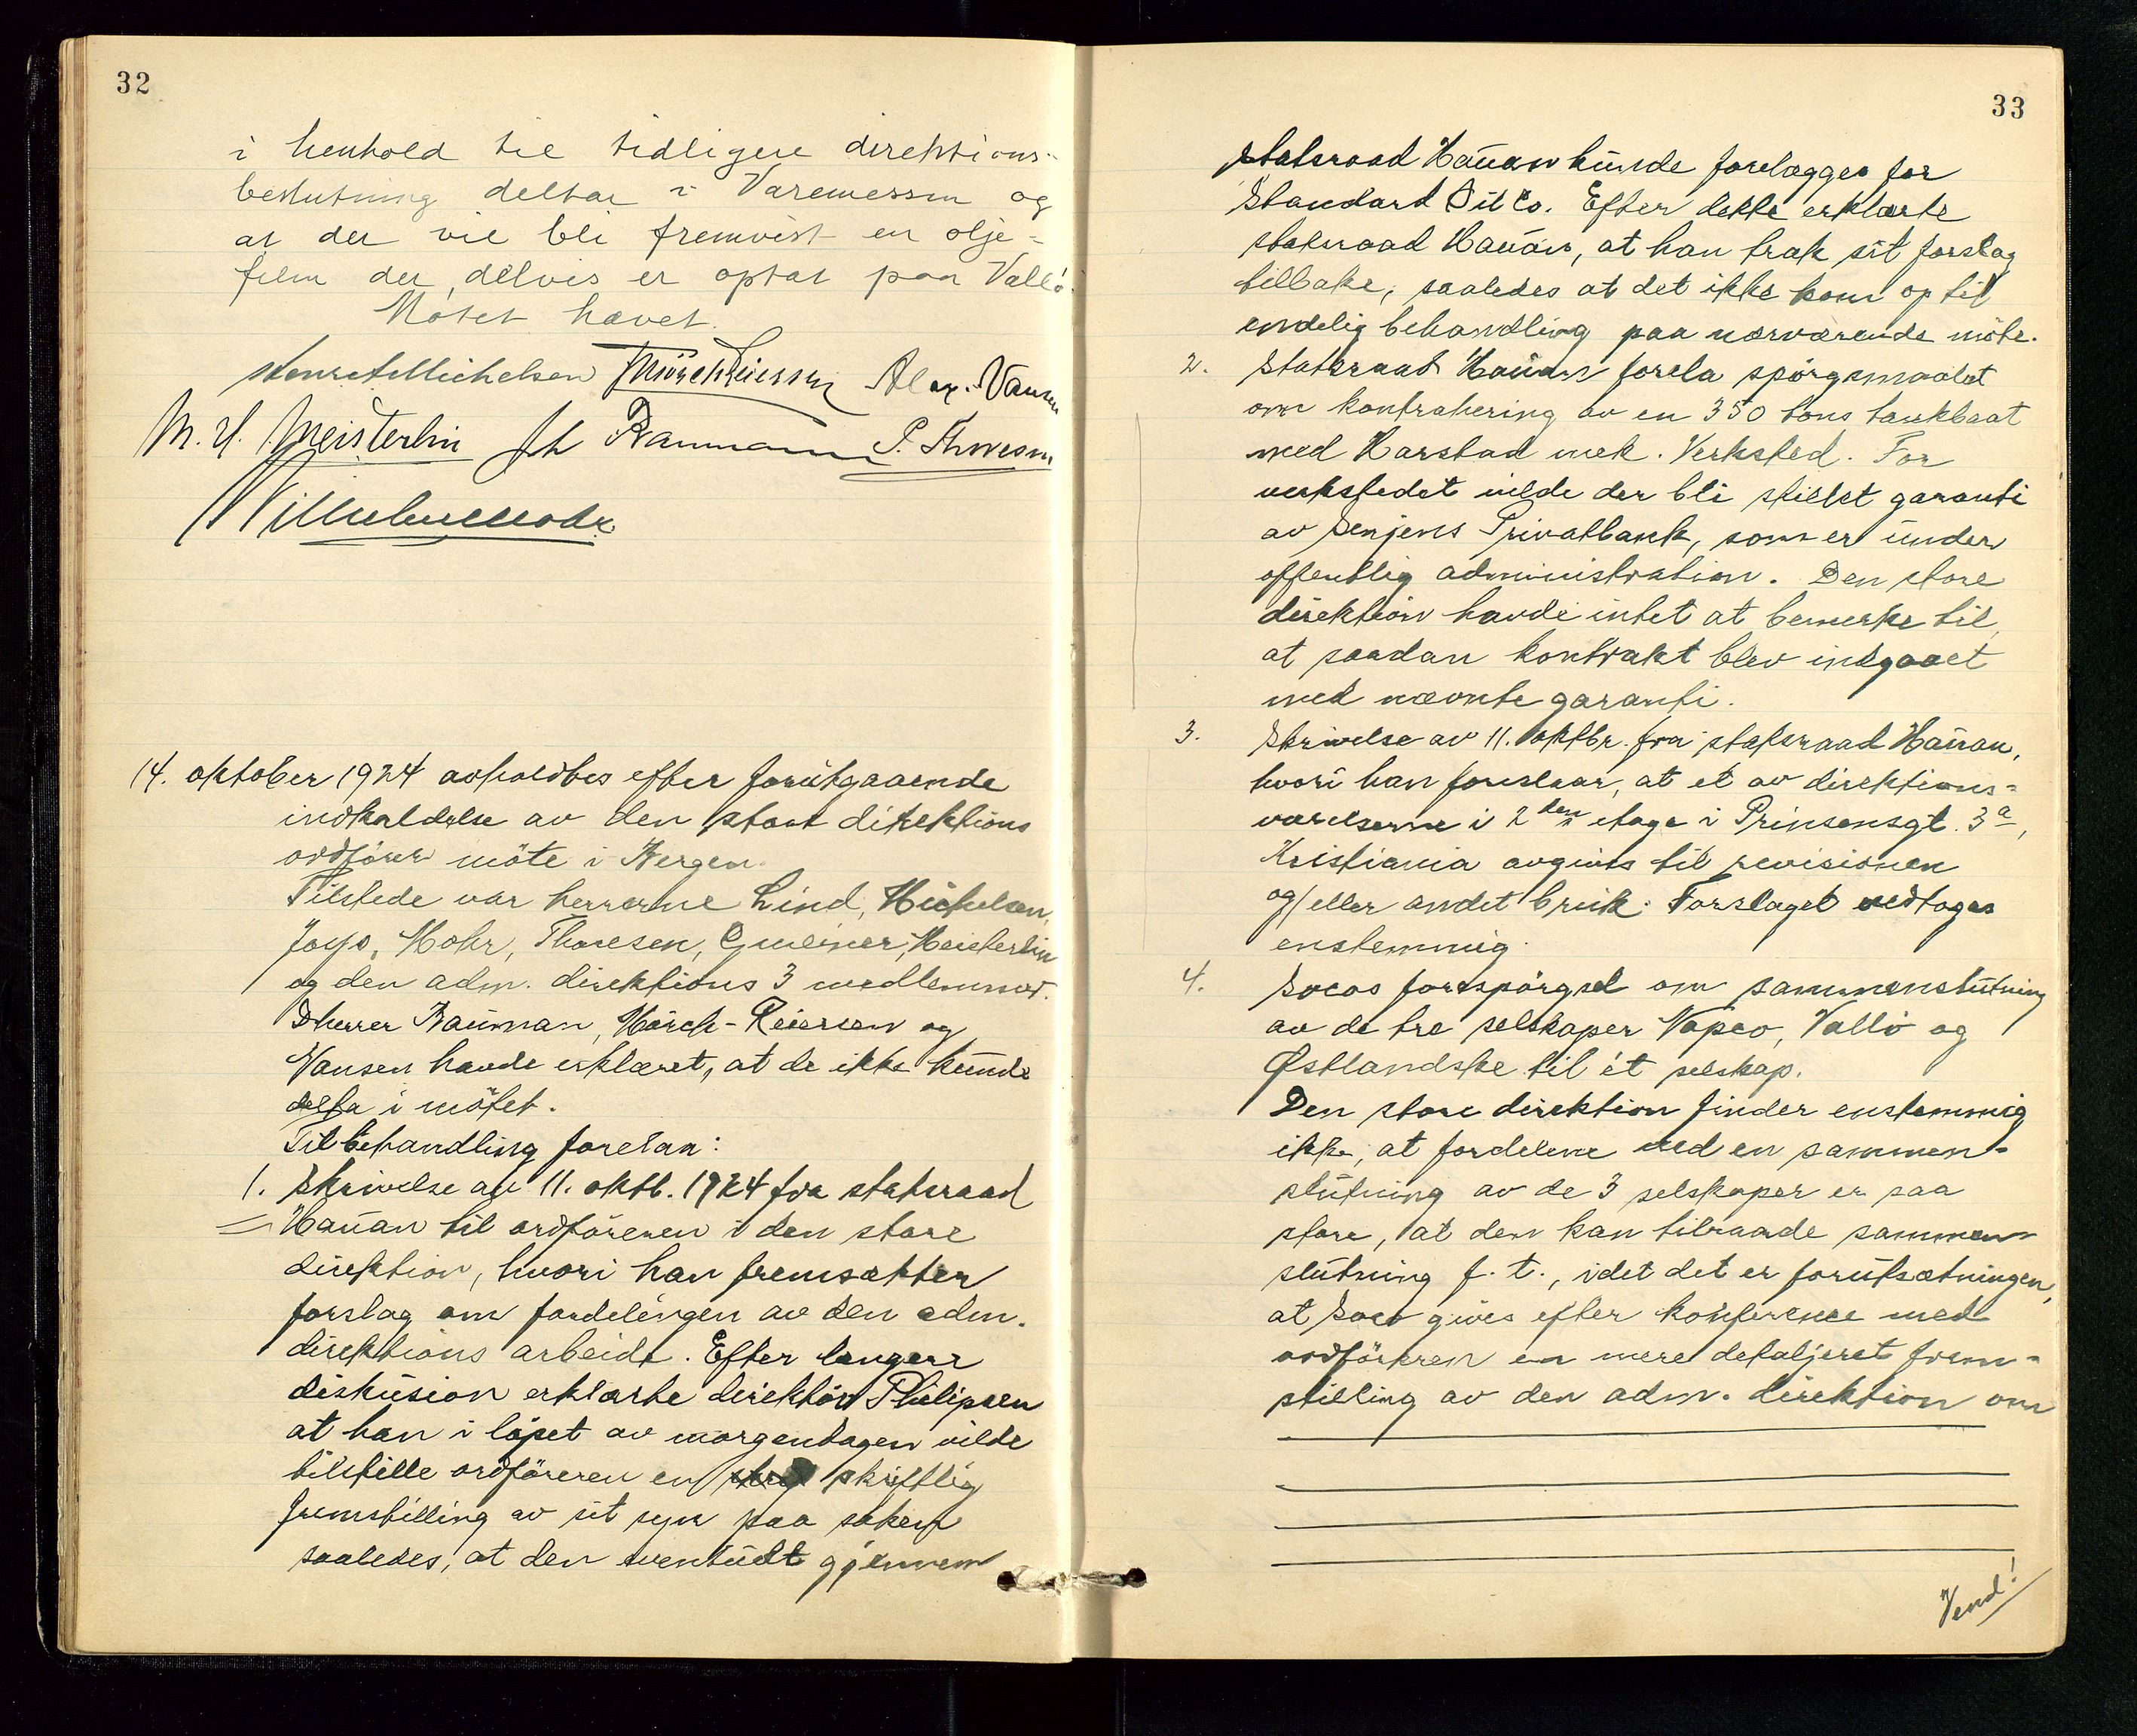 32
i henhold til tidligere direktions-
beslutning deltar i Varemessen og
at der vil bli fremvist en olje-
film der delvis er optat paa Vallö.
Mötet hævet.
Michelsen Mörch Reiersen Alex. Nansen
M. H. Meisterlin Joh Baumann P. Thoresen
Wilhelm Mohr
14. oktober 1924 avholdtes efter forutgaaende
indkaldelse av den store direktions
ordförer möte i Bergen.
Tilstede var herrerne Lind, Michelsen,
Joys, Mohr, Thoresen, Gmeiner, Meisterlin
og den adm. direktions 3 medlemmer.
D'herrer Bauman, Mörch-Reiersen og
Nansen havde erklæret, at de ikke kunde
delta i mötet.
Til behandling forelaa:
1. Skrivelse av 11. oktb. 1924 fra statsraad
Hauan til ordföreren i den store
direktion, hvori han fremsætter
forslag om fordelingen av den adm.
direktions arbeide. Efter længere
diskusion erklærte direktör Philipsen
at han i löpet av morgendagen vilde
tilstille ordföreren en skriftlig
fremstilling av sit syn paa saken
saaledes, at den eventuelt gjennem
33
statsraad Hauan kunde forelægges for
Standard Oil Co. Efter dette erklærte
statsraad Hauan, at han trak sit forslag
tilbake, saaledes at det ikke kom op til
endelig behandling paa nærværende möte.
2. Statsraad Hauan forela spörgsmaalet
om kontrahering av en 350 tons tankbaat
med Harstad mek. Verksted. For
verkstedet vilde der bli stillet garanti
av Senjens Privatbank, som er under
offentlig administration. Den store
direktion havde intet at bemerke til,
at saadan kontrakt blev indgaaet
med nævnte garanti.
3. Skrivelse av 11. oktbr. fra statsraad Hauan,
hvori han foreslaar, at et av direktions-
værelserne i 2den etage i Prinsensgt. 3a,
Kristiania avgives til revisionen
og/eller andet bruk. Forslaget vedtages
enstemmig.
4. Socos forespörgsel om sammenslutning
av de tre selskaper Vapco, Vallö og
Østlandske til ét selskap.
Den store direktion finder enstemmig
ikke, at fordelene ved en sammen-
slutning av de 3 selskaper er saa
store, at den kan tilraade sammen-
slutning f. t., idet det er forutsætningen,
at Soco gives efter konference med
ordföreren en mere detaljeret frem-
stilling av den adm. direktion om
Vend!